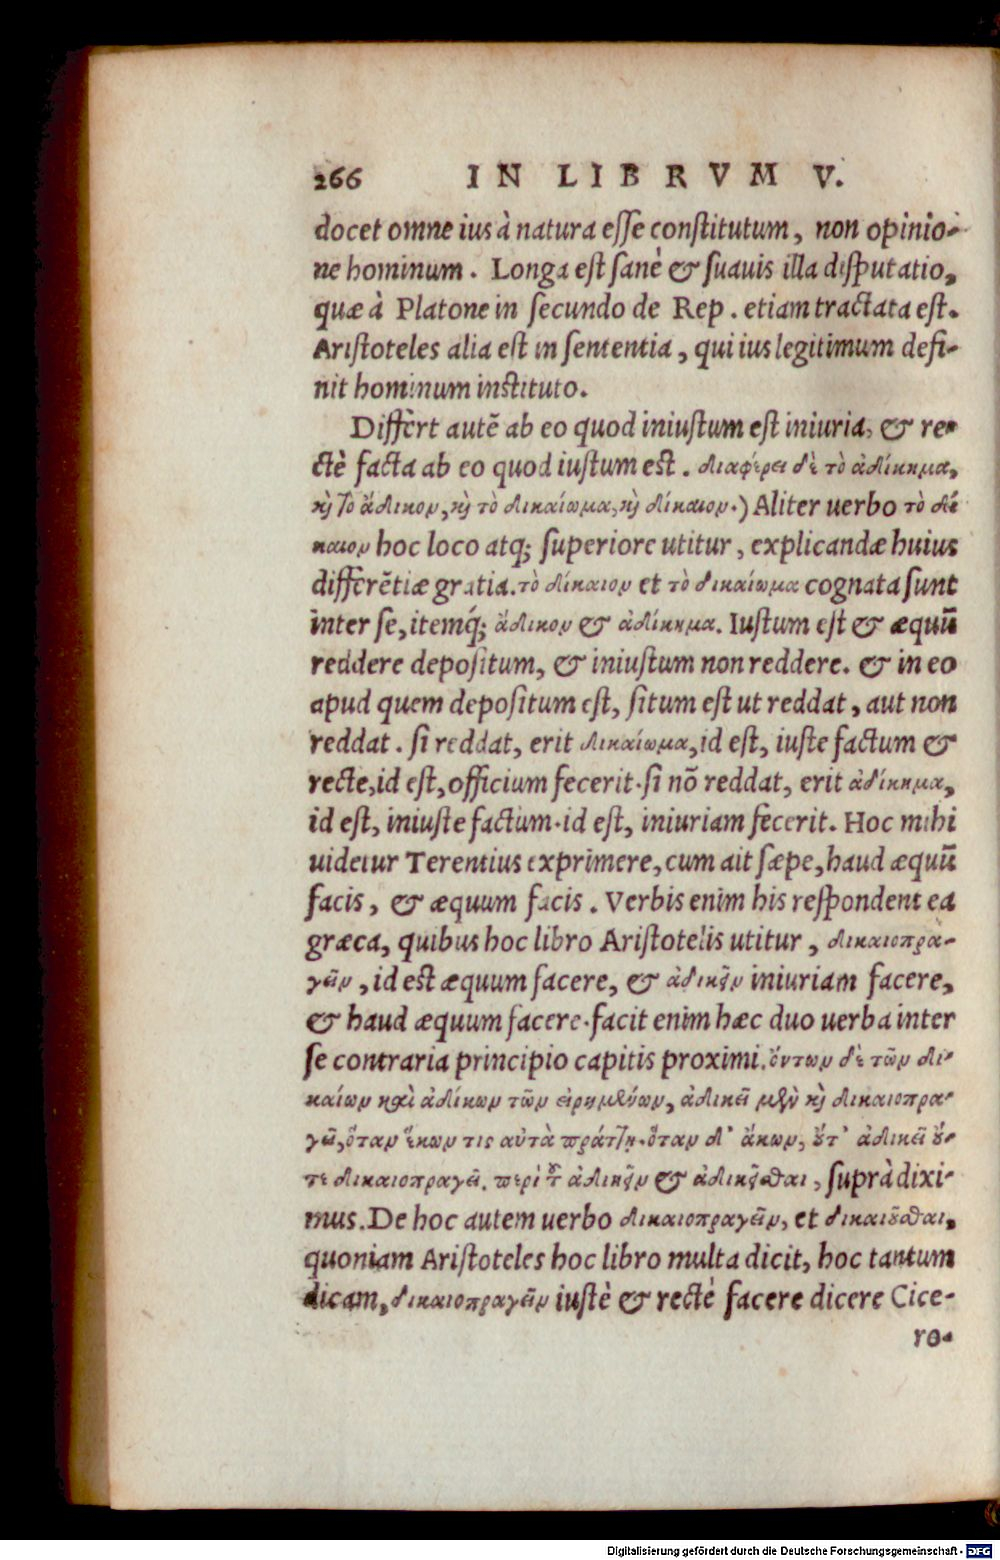 266 IN LIBRVM V.
docet omne ius à natura esse constitutum, non opinio-
ne hominum. Longa est sanè & suauis illa disputatio,
quæ à Platone in secundo de Rep. etiam tractata est.
Aristoteles alia est in sententia, qui ius legitimum defi-
nit hominum instituto.
Differt autẽ ab eo quod iniustum est iniuria, & re-
ctè facta ab eo quod iustum est. διαφέρει δὲ τὸ ἀδίκημα,
κὴ τὸ ἄδικον, κὴ τὸ δικαίωμα, κὴ δίκαιον.) Aliter uerbo τὸ δί
καιον hoc loco atq; superiore utitur, explicandæ huius
differẽtiæ gratia. τὸ δίκαιον et τὸ δικαίωμα cognata sunt
inter se, itemq́; ἄδικον & ἀδίκημα. Iustum est & æquũ
reddere depositum, & iniustum non reddere. & in eo
apud quem depositum est, situm est ut reddat, aut non
reddat. si reddat, erit δικαίωμα, id est, iuste factum &
recte, id est, officium fecerit. si nõ reddat, erit ἀδίκημα,
id est, iniuste factum. id est, iniuriam fecerit. Hoc mihi
uidetur Terentius exprimere, cum ait sæpe, haud æquũ
facis, & æquum facis. Verbis enim his respondent ea
græca, quibus hoc libro Aristotelis utitur, δικαιοπρα-
γεῖν, id est æquum facere, & ἀδικεῖν iniuriam facere,
& haud æquum facere. facit enim hæc duo uerba inter
se contraria principio capitis proximi. ὄντων δὲ τῶν δι-
καίων καὶ ἀδίκων τῶν εἰρημένων, ἀδικεῖ μὲν κὴ δικαιοπρα-
γεῖ, ὅταν ἑκων τις αὐτὰ πράτῃ. ὅταν δ' ἄκων, ȣ̓τ' ἀδικεῖ ȣ̓-
τε δικαιοπραγεῖ. περὶ τȣ͂ ἀδικεῖν & ἀδικεῖσθαι, suprà dixi-
mus. De hoc autem uerbo δικαιοπραγεῖν, et δικαιȣ͂σθαι,
quoniam Aristoteles hoc libro multa dicit, hoc tantum
dicam, δικαιοπραγεῖν iustè & rectè facere dicere Cice-
ro-
Digitalisierung gefördert durch die Deutsche Forschungsgemeinschaft - DFG